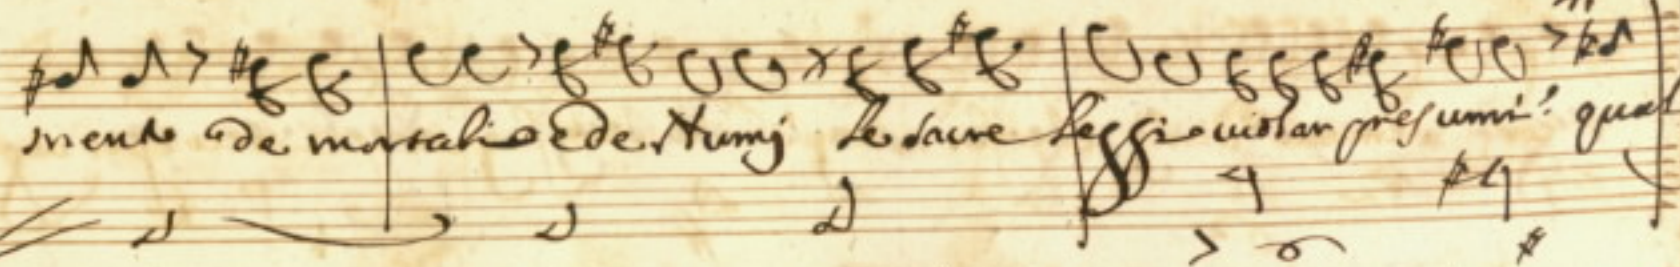 mente e de mortali e de Numj le sacre leggi violar presumi? qual